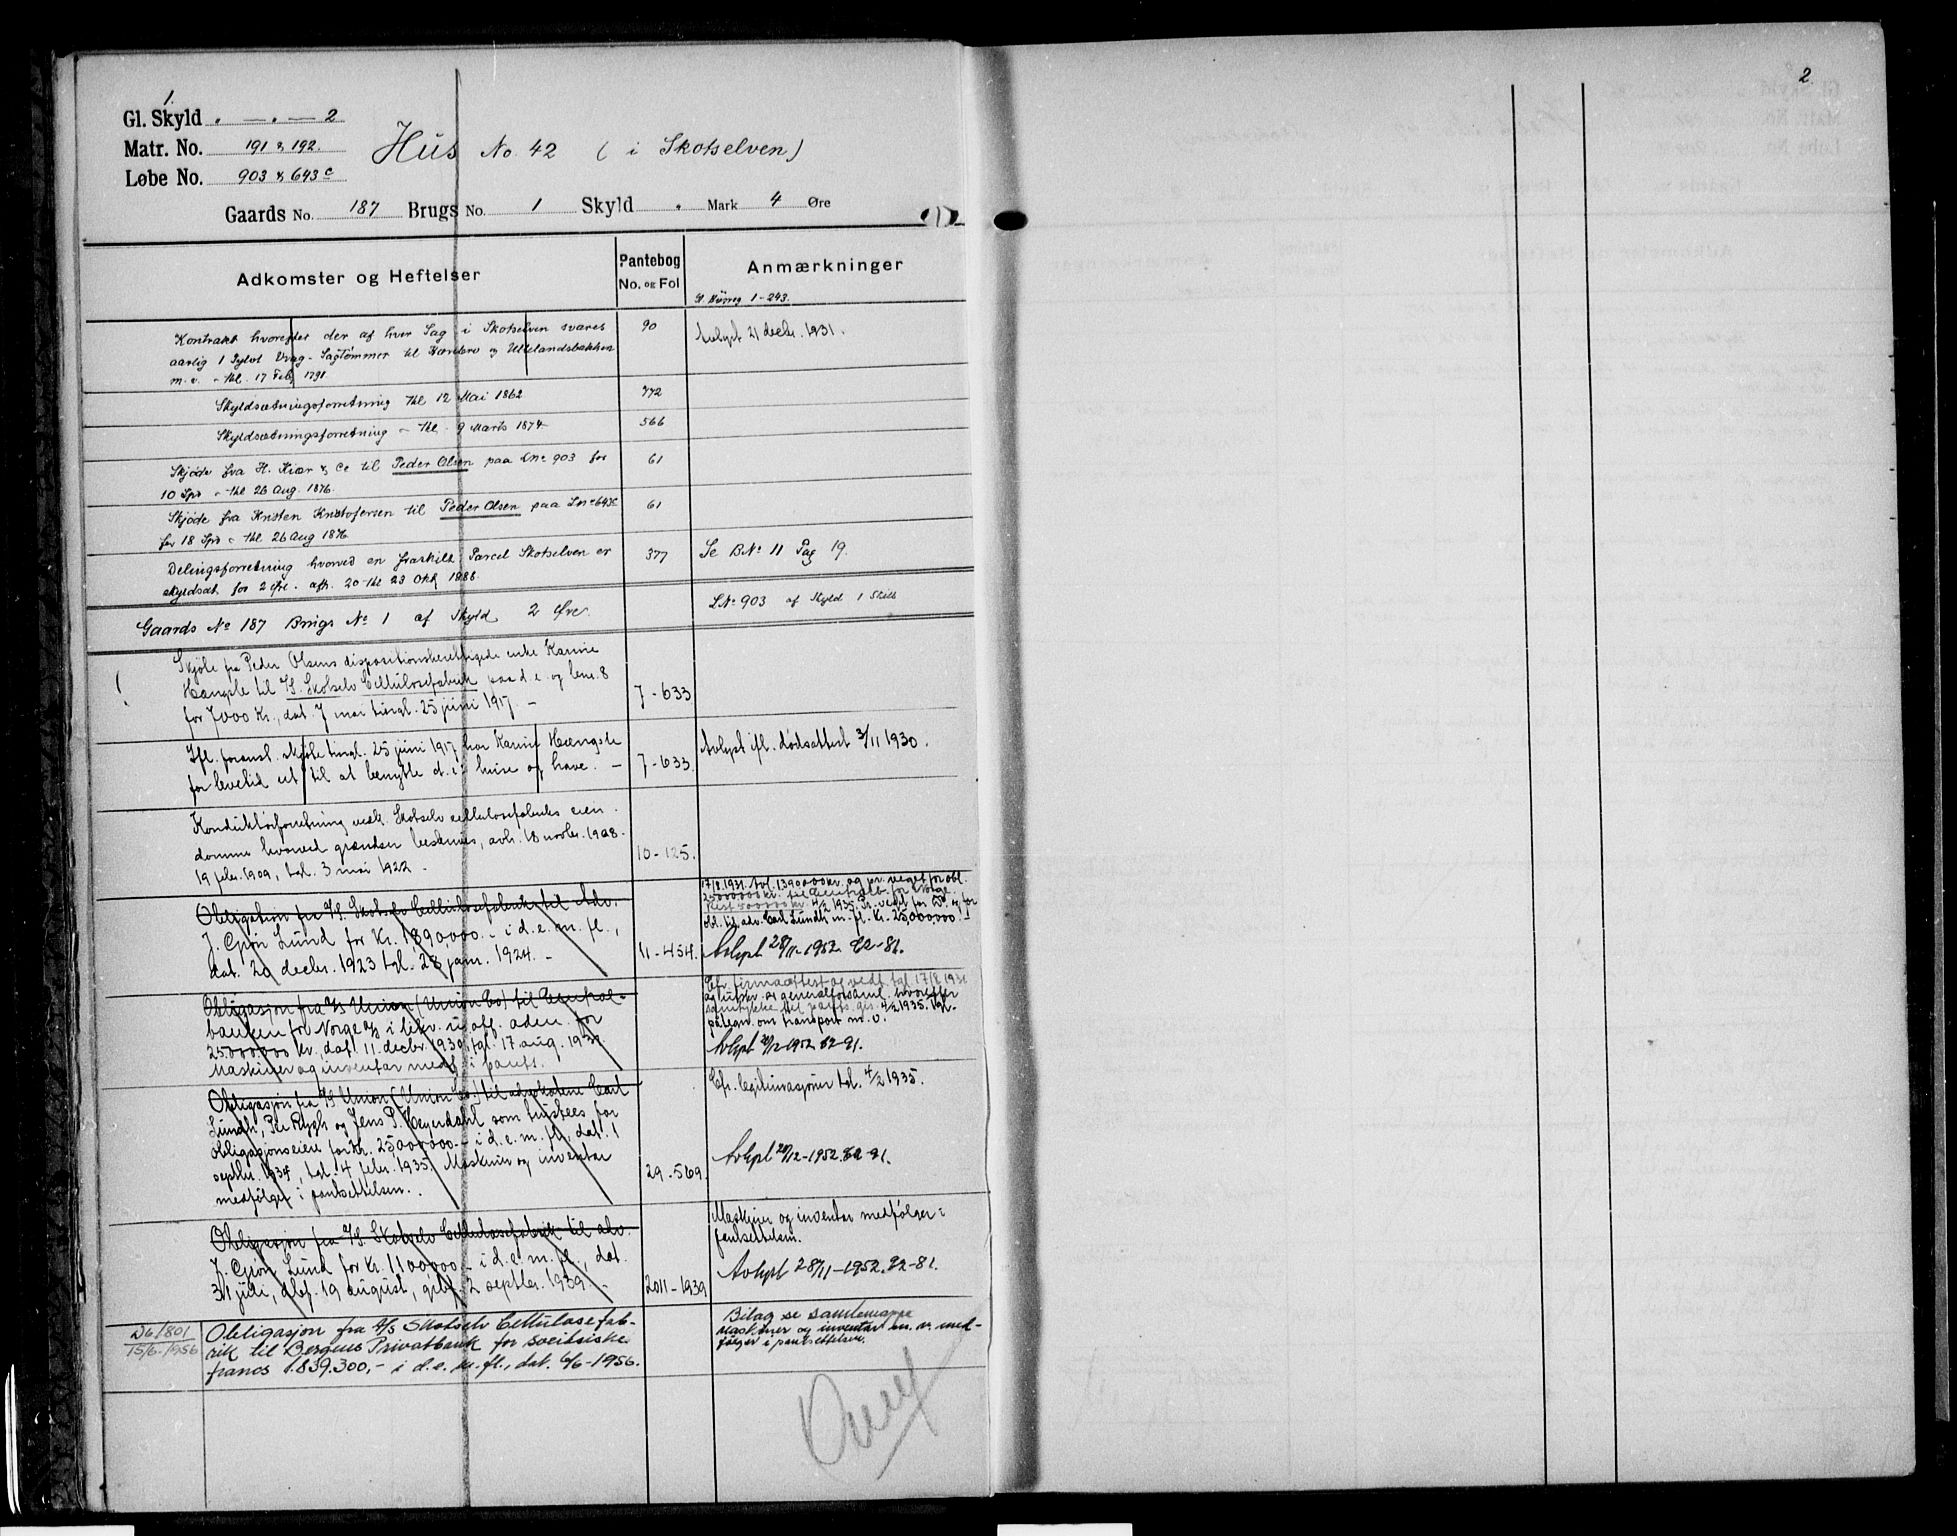 1.
Gl. Skyld . — . — 2
Matr. No. 191 & 192.
Løbe No. 903 & 643c
Hus No. 42 ( i Skotselven)
Gaards No. 187 Brugs No. 1 Skyld . Mark 4 Øre
Adkomster og Heftelser
Pantebog
No. og Fol
Anmærkninger
1-243.
Kontrakt hvorefter der af hver Sag i Skotselven svares
aarlig 1 Tylvt Vrag-Sagtømmer til
m. v. - thl. 17 Feb 1791
90
Avlyst 21 decbr. 1931.
Skyldsætningsforretning thl 12 Mai 1862
772
Skyldsætningsforretning - thl. 9 Marts 1874
566
Skjøde fra H. Kiær & Ce til Peder Olsen paa LNo 903 for
10 Spd - thl 26 Aug. 1876.
61
Skjøde fra Kristen Kristofersen til Peder Olsen paa LNo 643c
for 18 Spd - thl. 26 Aug 1876
61
Delingsforretning hvorved en fraskilt Parcel Skotselven er
skyldsat for 2 Øre. afh. 20 thl 23 Okt 1886.
377
Se BNo 11 Pag 19.
Gaards No 187 Brugs No 1 af Skyld 2 Øre
LNo 903 af Skyld 1 Skill
Skjøte fra Peder Olsens dispositionsberettigede enke Karine
Hængsle til A/S. Skotselv Cellulosefabrik paa d. e. og bnr. 8
for 7000 Kr., dat. 7 mai tingl. 25 juni 1917. -
7-633
Ifl. foranst. skjøte tingl. 25 juni 1917 har Karine Hængsle
for levetid ret til at benytte d. e.s huse og have. -
7-633.
Avlyst ifl. dødsattest 3/11 1930.
Konduktørforretning vedk. Skotselv cellulosefabriks eien-
domme hvorved grændser beskrives, avh. 18 novbr. 1908-
19 febr. 1909, tgl. 3 mai 1922 -
10-125.
Obligation fra A/S. Skotselv Cellulosefabrik til Adv.
J. Gjør Lund for Kr. 1890000.- i d. e. m. fl.,
dat. 20 decbr. 1923 tgl. 28 jan. 1924. -
11-454.
17/8 1931. Avl. 1390000 kr. og pr. veget for obl.
25000000 kr. til Centralb. for Norge.
Rest 500000 kr. 4/2 1935. Pr. vedt for Do. og for
obl. til adv. Carl Lundh m. fl. Kr. 25,000000.-!
Avlyst 28/11-1952. 82-81.
Obligasjon fra A/S Union (Union Co) til Central-
banken for Norge A/S i likv. u. off. adm. for
25.000000 kr., dat. 11. decbr. 1930, tgl. 17 aug. 1931.
Maskiner og inventar medf. i pants.
Cfr. firmaattest og vedt. tgl 17/8 1931
og utskr. av generalforsaml. hvorefter
samtykke til pants. gis. 4/2 1935. Tgl.
påtegn. om transport m. v.
Avlyst 20/12-1952 82-91.
Obligasjon fra A/S Union (Union Co.) til advokatene Carl
Lundh, Per Rygh og Jens P. Heyerdahl som trustees for
obligasjonseiere for Kr. 25000000.- i d. e. m. fl., dat. 1
septbr. 1934, tgl. 4 febr. 1935. Maskiner og inventar
medfølger i pantsettelsen. .
29-569.
Cfr. legitimasjoner tgl. 4/2 1935.
Avlyst 20/12-1952. 82-91.
Obligasjon fra A/S. Skotselv Cellulosefabrik til adv.
J. Gjør Lund for kr. 1100000.- i d. e. m. fl., dat.
31 juli, dbf. 19 august, gbf. 2 septbr. 1939. -
2011-1939
Maskiner og inventar medfølger i
pantsettelsen.
Avlyst 28/11-1952. 82-81.
D6/801
15/6-1956
Obligasjon fra A/S Skotselv Cellulosefab-
rik til Bergens Privatbank for sveitsiske
francs 1.839.300,- i d. e. m. fl., dat. 6/6-1956.
Bilag se samlemappe
Maskiner og inventar m. v. med-
følger i pantsettelsen.
2